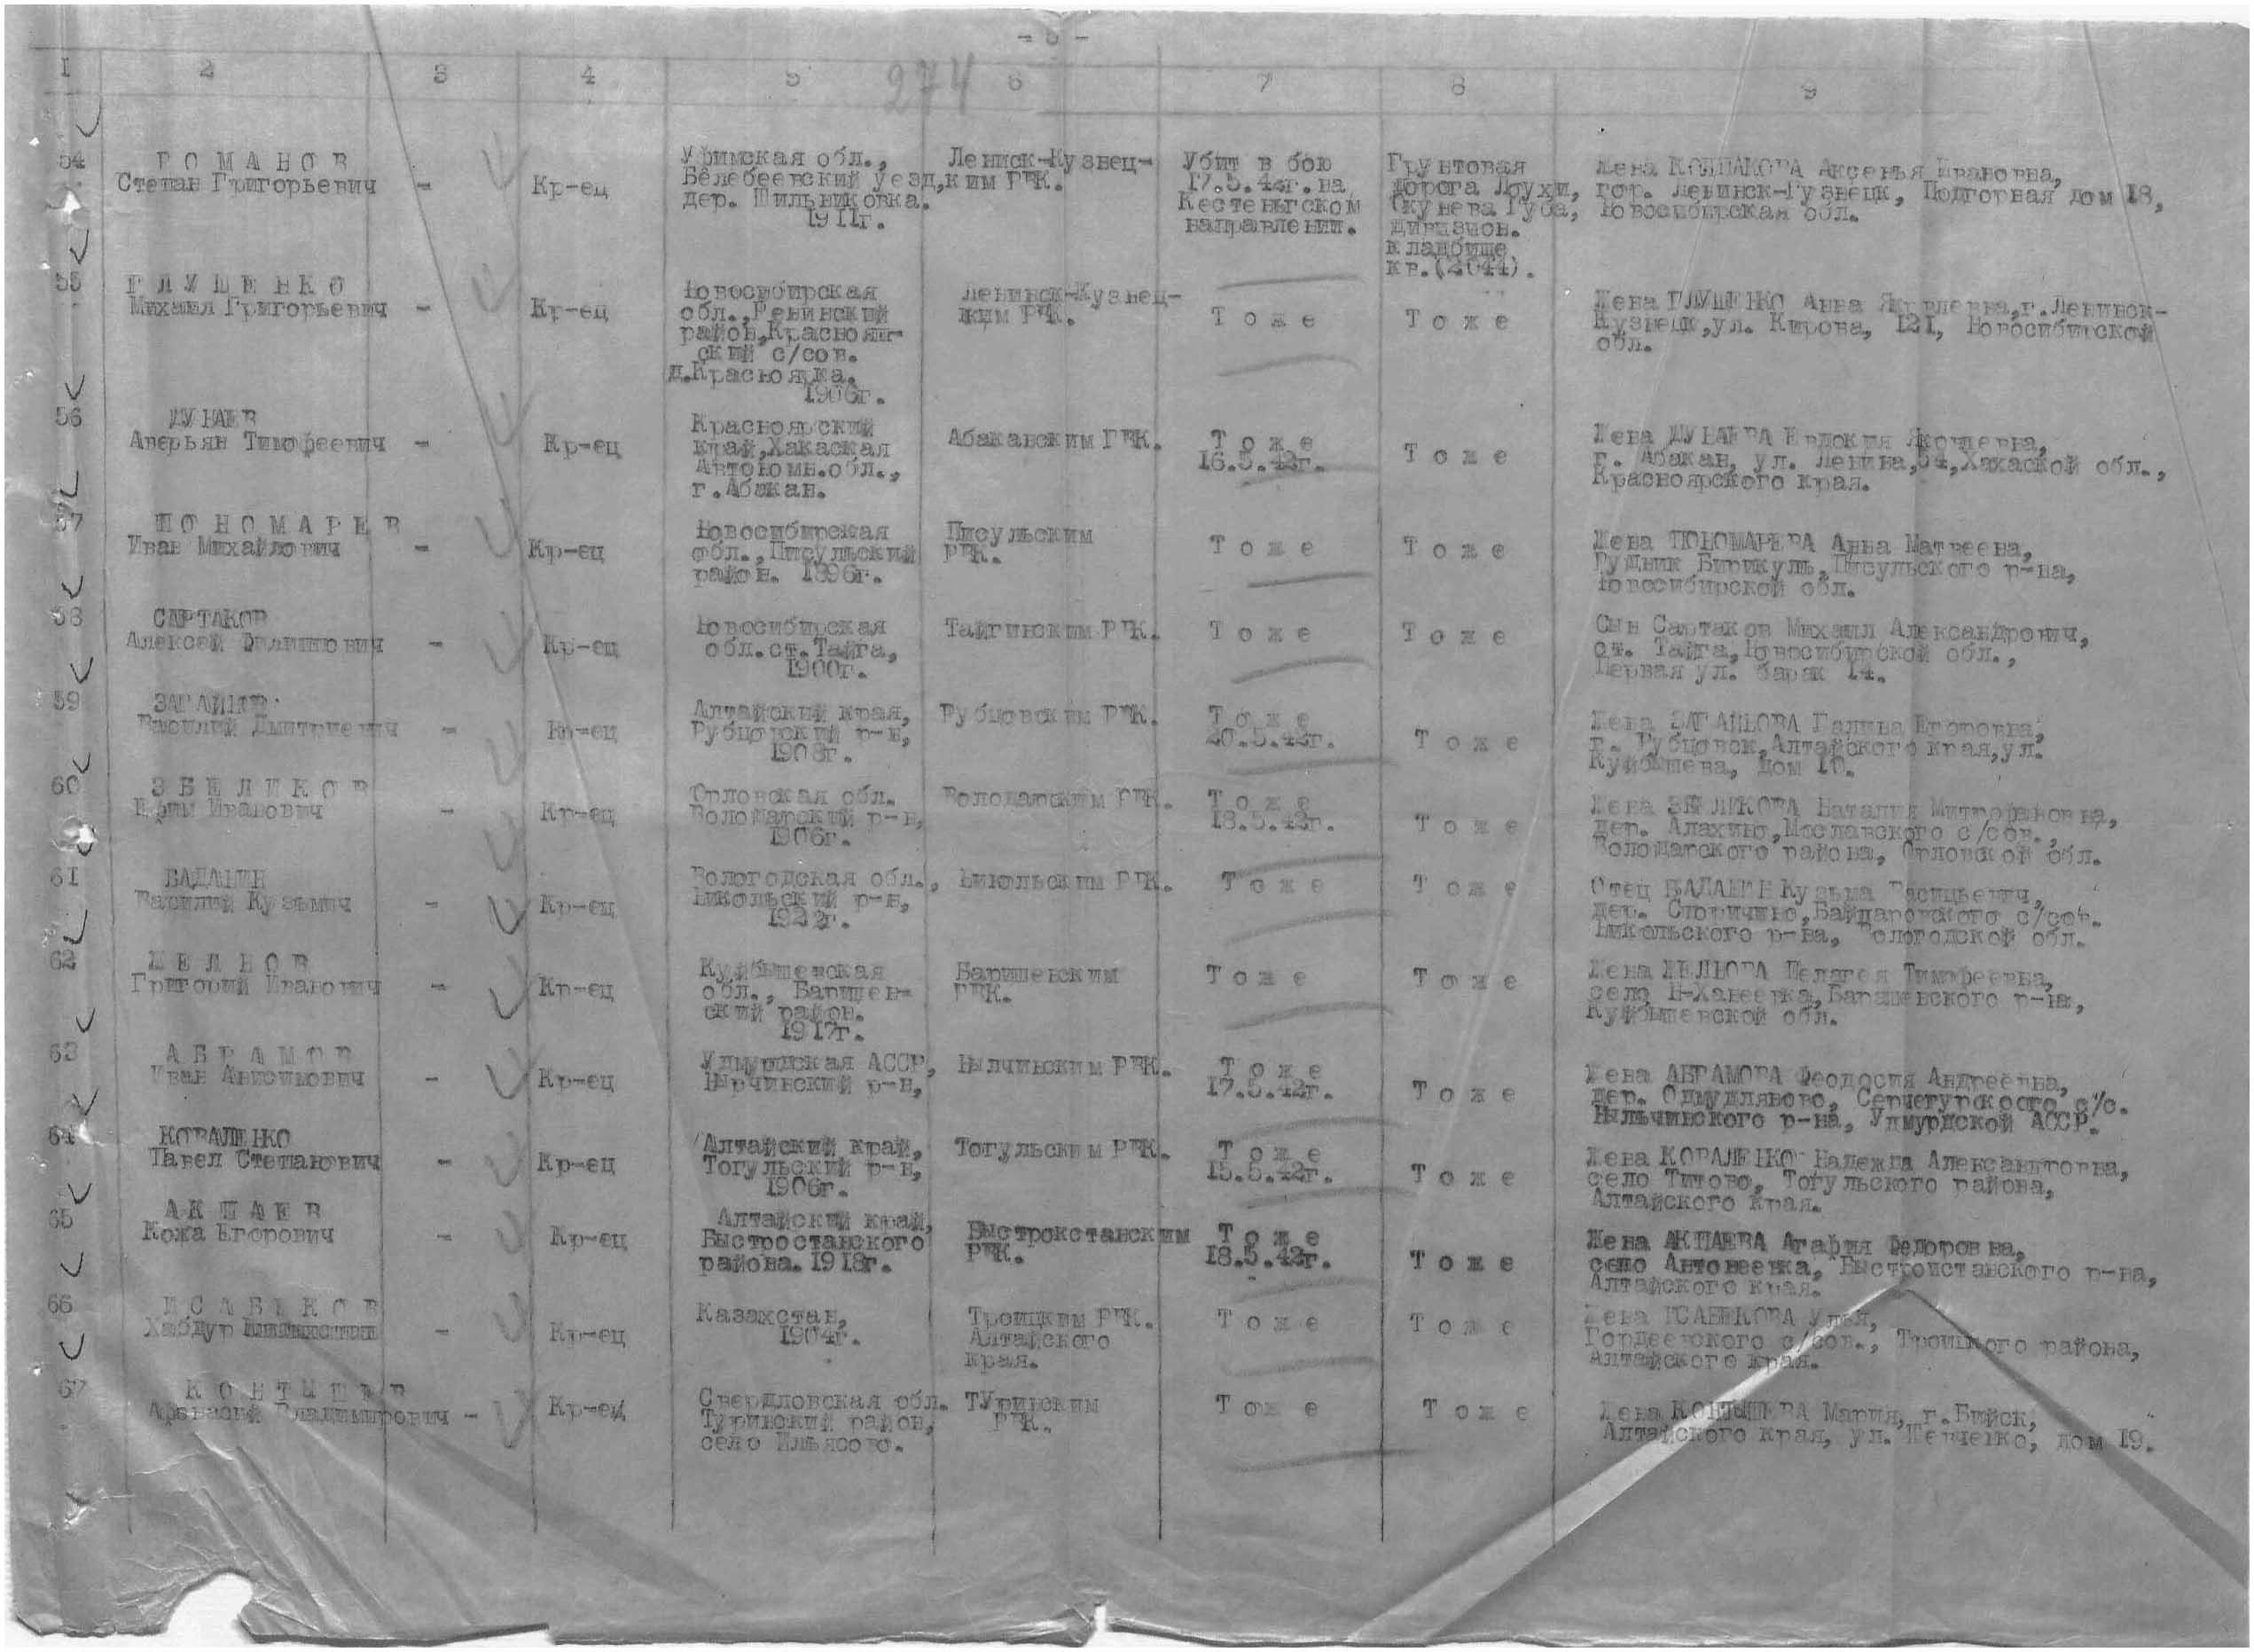 1 2 3 4 5 6 7 8 9
274
54
РОМАНОВ
Степан Григорьевич -
Кр-ец
Уфимская обл.,
Белебеевский уезд,
дер. Шильниковка.
1911г.
Лениск-Кузнец-
ким РВК.
Убит в бою
17.5.42г. на
Кестеньгском
направлении.
Грунтовая
дорога Лоухи,
Окунева Губа,
дивизион.
кладбище
кв.(2044).
Жена КОЛПАКОВА Аксенья Ивановна,
гор. Ленинск-Кузнецк, Подгорная дом 18,
Новосибирская обл.
55
ГЛУЩЕНКО
Михаил Григорьевич -
Кр-ец
Новосибирская
обл.,
район,Краснояр-
ский с/сов.
д.Красноярка.
1906г.
Ленинск-Кузнец-
ким РВК.
Тоже
Тоже
Жена ГЛУЩЕНКО Анна Яковлевна,г.Ленинск-
Кузнецк,ул. Кирова, 121, Новосибирской
обл.
56
ДУНАЕВ
Аверьян Тимофеевич -
Кр-ец
Красноярский
край,Хакаская
Автономн.обл.,
г.Абакан.
Абаканским ГВК.
Тоже
16.5.42г.
Тоже
Жена ДУНАЕВА Евдокия Яковлевна,
г. Абакан, ул. Ленина,54,Хакаской обл.,
Красноярского края.
57
ПОНОМАРЕВ
Иван Михайлович -
Кр-ец
Новосибирская
обл.,Тисульский
район. 1896г.
Тисульским
РВК.
Тоже
Тоже
Жена ПОНОМАРЕВА Анна Матвеевна,
Рудник Бирикуль,Тисульского р-на,
Новосибирской обл.
58
САРТАКОВ
Алексей Филиппович -
Кр-ец
Новосибирская
обл.ст.Тайга,
1900г.
Тайгинским РВК.
Тоже
Тоже
Сын Сартаков Михаил Александрович,
ст. Тайга,Новосибирской обл.,
Первая ул. барак 14.
59
ЗАГАЙНОВ
Василий Дмитриевич -
Кр-ец
Алтайский края,
Рубцовский р-н,
1908г.
Рубцовским РВК.
Тоже
20.5.42г.
Тоже
Жена ЗАГАЙНОВА Галина Егоровна,
г. Рубцовск,Алтайского края,ул.
Куйбышева, дом 10.
60
ЗБЕЛИКОВ
Ефим Иванович -
Кр-ец
Орловская обл.
Володарский р-н,
1906г.
Володарским РВК.
Тоже
18.5.42г.
Тоже
Жена ЗБЕЛИКОВА Наталия Митрофановна,
дер. Алахино,Мославского с/сов.,
Володарского района, Орловской обл.
61
БАДАНИН
Василий Кузьмич -
Кр-ец
Вологодская обл.,
Никольский р-н,
1922г.
Никольским РВК.
Тоже
Тоже
Отец БАДАНИН Кузьма Васильевич,
дер. Споричино,Байдаровского с/сов.
Никольского р-на, Вологодской обл.
62
ЖЕЛНОВ
Григорий Иванович -
Кр-ец
Куйбышевская
обл., Барышев-
ский район.
1917г.
Барышевским
РВК.
Тоже
Тоже
Жена ЖЕЛНОВА Пелагея Тимофеевна,
село Н-Ханеевка,Барышевского р-на,
Куйбышевской обл.
63
АБРАМОВ
Иван Анисимович -
Кр-ец
Удмуртская АССР,
Нылчинский р-н,
Нылчинским РВК.
Тоже
17.5.42г.
Тоже
Жена АБРАМОВА Феодосия Андреевна,
дер. с/с.
Нылчинского р-на, Удмурдской АССР.
64
КОВАЛЕНКО
Павел Степанович -
Кр-ец
Алтайский край,
Тогульский р-н,
1906г.
Тогульским РВК.
Тоже
15.5.42г.
Тоже
Жена КОВАЛЕНКО Надежда Александровна,
село Титово, Тогульского района,
Алтайского края.
65
АКПАЕВ
Кожа Егорович -
Кр-ец
Алтайский край,
Быстростанского
района.1918г.
Быстрокстанским
РВК.
Тоже
18.5.42г.
Тоже
Жена АКПАЕВА Агафия Федоровна,
село Антонеевка, Быстроистанского р-на,
Алтайского края.
66
ИСАБЕКОВ
Хабдур
Кр-ец
Казахстан,
1904г.
Троицким РВК.
Алтайского
края.
Тоже
Тоже
Жена ИСАБЕКОВА Улья,
Гордеевского с/сов., Троицкого района,
Алтайского края.
67
КОНТЫШЕВ
Афанасий Владимирович -
Кр-ец
Свердловская обл.
Туринский район,
село Ильясово.
ТУринским
РВК.
Тоже
Тоже
Жена КОНТЫШЕВА Мария, г.Бийск,
Алтайского края, ул. Шевченко, дом 19.